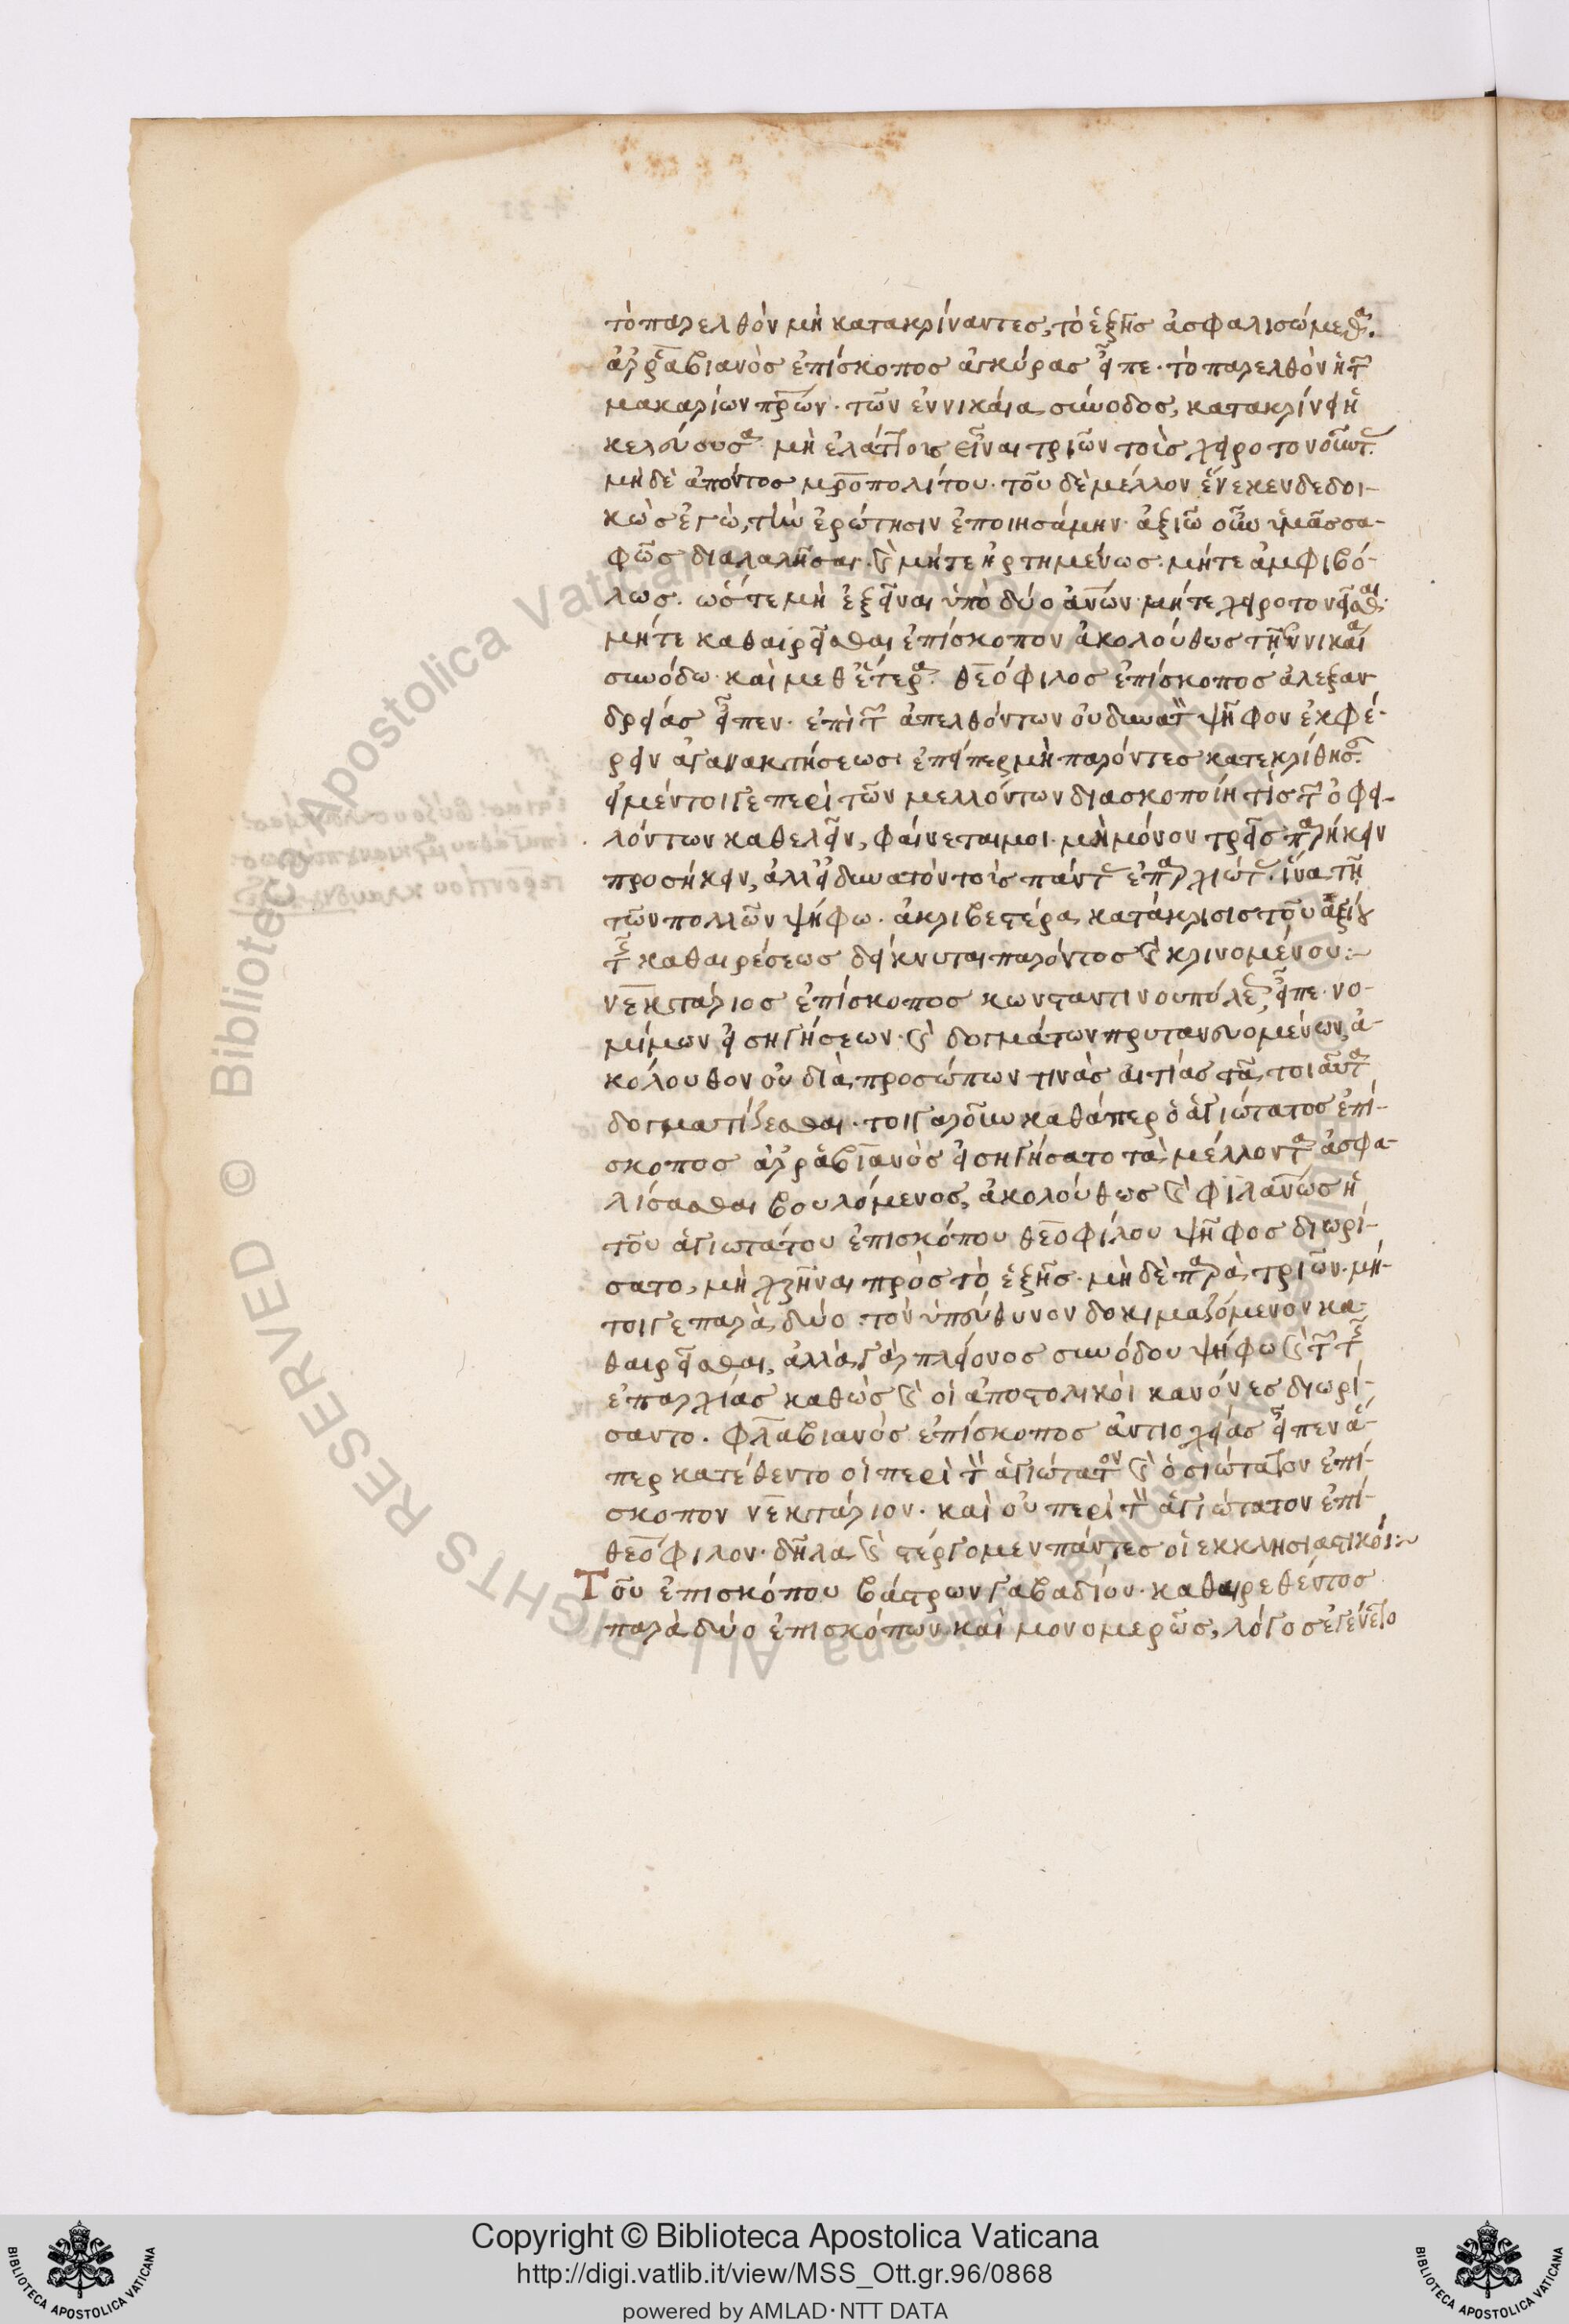 τὸ παρελθὸν μὴ κατακρίναντες, τὸ ἑξῆς ἀσφαλισώμεθα.
ἀρραβιανὸς ἐπίσκοπος ἀγκύρας εἶπε· τὸ παρελθὸν ἡ τῶν
μακαρίων πρων· τῶν ἐν νικαία σύνοδος, κατακρίνει ἡ
κελεύουσα μὴ ἐλάττοις εἶναι τριῶν τοῖς χειροτονοῦντας
μὴ δὲ ἀπόντος μροπολίτου· τοῦ δὲ μέλλον ἕνεκεν δεδοι-
κὼς ἐγὼ, τὴν ἐρώτησιν ἐποιησάμην· ἀξιῶ οὖν ὑμᾶς σα-
φῶς διαλαλῆσαι καὶ μήτε ἠρτημένως· μήτε ἀμφιβό-
λως. ὥστε μὴ ἐξεῖναι ὑπὸ δύο ἀνων· μήτε χειροτονεῖσθαι·
μήτε καθαιρεῖσθαι ἐπίσκοπον ἀκολούθως τῆ ἐν νικαία
συνόδω· καὶ μεθ ἕτερα. θεόφιλος ἐπίσκοπος ἀλεξαν
δρείας εἶπεν· ἐπὶ τῶν ἀπελθόντων οὐ δυνατὸν ψῆφον ἐκφέ-
ρειν ἀγανακτήσεως· ἐπείπερ μὴ παρόντες κατεκρίθησαν.
εἰ μέντοιγε περὶ τῶν μελλόντων διασκοποίη τὶς τῶν ὀφει-
λόντων καθελεῖν, φαίνεταί μοι· μὴ μόνον τρεῖς παρήκειν
προσήκειν, ἀλλ εἰ δυνατὸν τοὺς πάντας ἐπαρχιώτας. ἵνα τῆ
τῶν πολλῶν ψήφω· ἀκριβεστέρα κατάκρισις τοῦ ἀξίου
τῆς καθαιρέσεως δείκνυται παρόντος καὶ κρινομένου:~
νεκτάριος ἐπίσκοπος κωνσταντινουπόλεως, εἶπε· νο-
μίμων εἰσηγήσεων καὶ δογμάτων πρυτανευομένων, ἀ-
κόλουθον οὐ διὰ προσώπων τινὰς αἰτίας τὰ τοιαῦτα
δογματίζεσθαι· τοιγαροῦν καθάπερ ὁ ἁγιώτατος ἐπί-
σκοπος ἀρραβιανὸς εἰσηγήσατο τὰ μέλλοντα ἀσφα-
λίσασθαι βουλόμενος, ἀκολούθως καὶ φιλανως ἡ
τοῦ ἁγιωτάτου ἐπισκόπου θεοφίλου ψῆφος διωρί-
σατο, μὴ χρῆναι πρὸς τὸ ἑξῆς· μὴ δὲ παρὰ τριῶν· μή-
τοιγε παρὰ δύο· τὸν ὑπεύθυνον δοκιμαζόμενον κα-
θαιρεῖσθαι, ἀλλὰ γὰρ πλείονος συνόδου ψήφω καὶ τῶν τῆς
ἐπαρχίας καθὼς καὶ οἱ ἀποστολικοὶ κανόνες διωρί-
σαντο. φλαβιανὸς ἐπίσκοπος ἀντιοχείας εἶπεν ἅ-
περ κατέθεντο οἱ περὶ τὸν ἁγιώτατον καὶ ὁσιώτατον ἐπί-
σκοπον νεκτάριον· καὶ οἱ περὶ τὸν ἁγιώτατον ἐπί-
θεόφιλον· δῆλα καὶ στέργομεν πάντες οἱ ἐκκλησιαστικοί:~
Τοῦ ἐπισκόπου βόστρων γαβαδίου· καθαιρεθέντος
παρὰ δύο ἐπισκόπων καὶ μονομερῶς, λόγος ἐγένετο
Copyright © Biblioteca Apostolica Vaticana
http://digi.vatlib.it/view/MSS_Ott.gr.96/0868
powered by AMLAD·NTT DATA